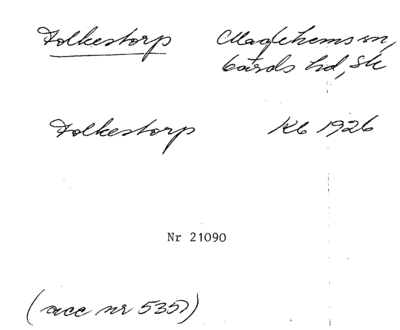 Folkestorp Maglehems sn,
Gärds hd, Sk
Folkestorp Kb 1926
Nr 21090
(acc nr 5357)